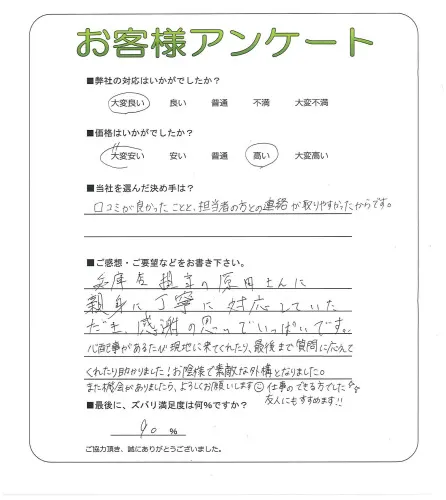 お客様アンケート
■弊社の対応はいかがでしたか?
大変良い 良い 普通 不満 大変不満
■価格はいかがでしたか?
大変安い 安い 普通 高い 大変高い
■当社を選んだ決め手は?
口コミが良かったことと、担当者の方との連絡が取りやすかったからです。
■ご感想・ご要望などをお書き下さい。
兵庫店担当の原田さんに
親身に丁寧に対応していた
だき、感謝の思いでいっぱいです。
心配事があるたび現地に来てくれたり、最後まで質問に応えて
くれたり助かりました!お陰様で素敵な外構となりました。
また機会がありましたら、よろしくお願いします☺仕事のできる方でした
友人にもすすめます!!
■最後に、ズバリ満足度は何%ですか?
90 %
ご協力頂き、誠にありがとうございました。